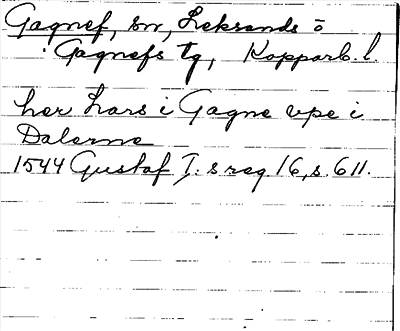 Gagnef, sn, Leksands o
Gagnefs tg, Kopparb. l.
her Lars i Gagne vpe i
Dalerne
1544 Gustaf I:s reg 16, s. 611.